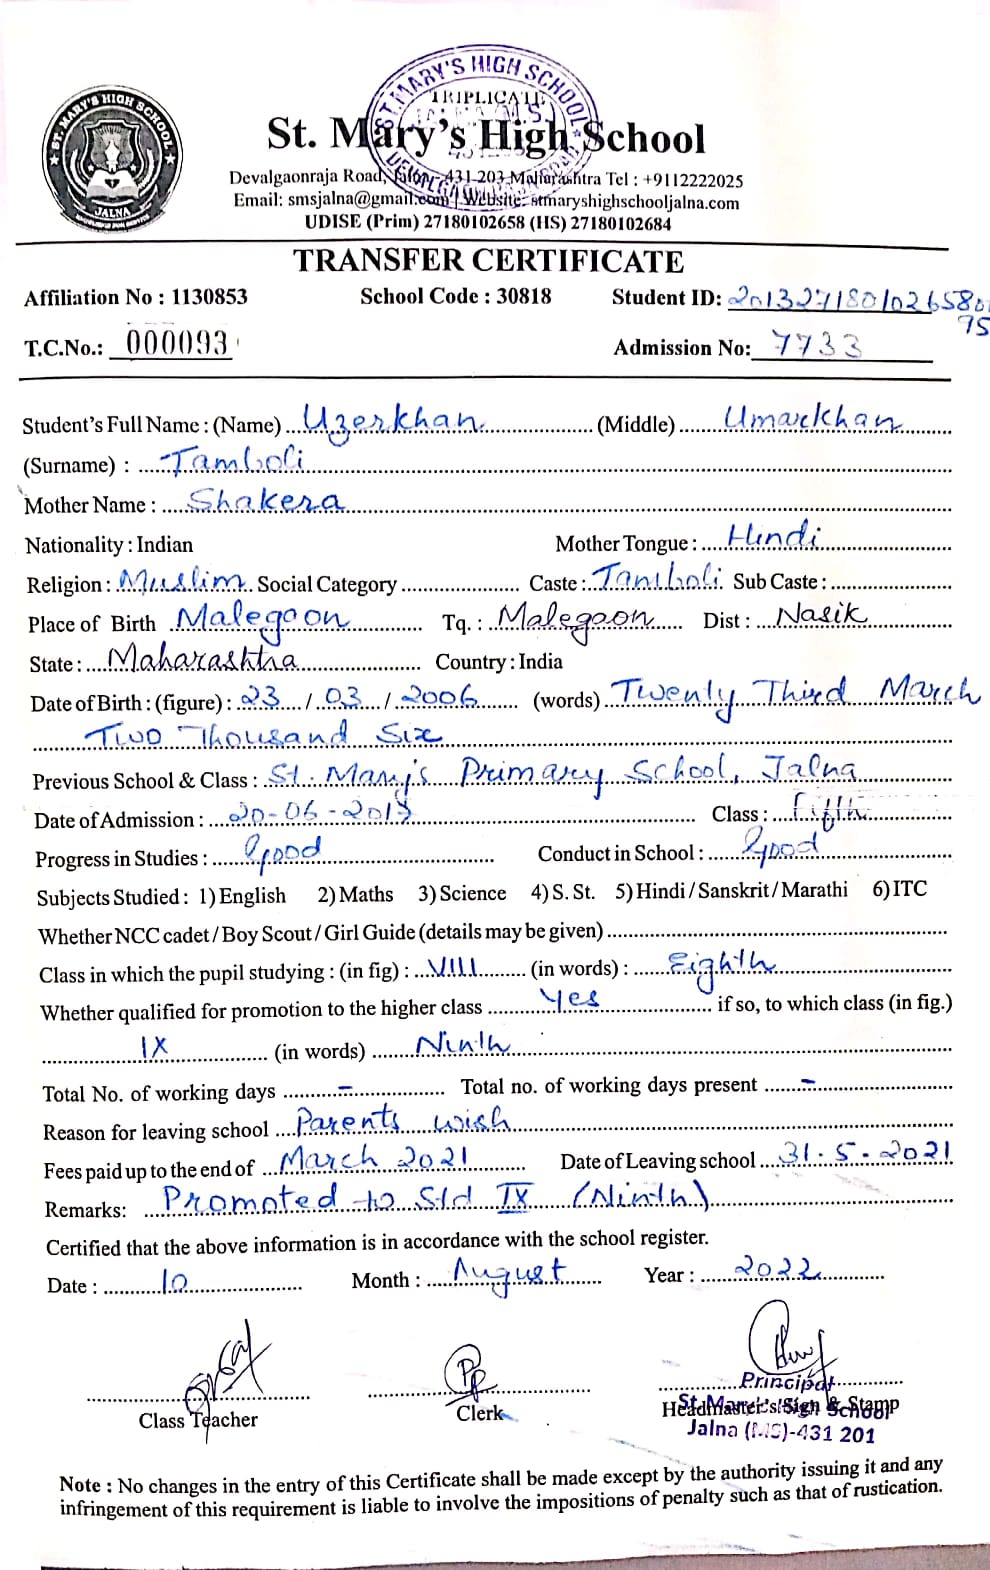 ST. MARY'S HIGH SCHOOL
TRIPLICATE
ST. MARY'S HIGH SCHOOL
JALNA
St. Mary's High School
Devalgaonraja Road, Jalna-431 203 Maharashtra Tel : +9112222025
Email: smsjalna@gmail.com | Website: stmaryshighschooljalna.com
UDISE (Prim) 27180102658 (HS) 27180102684
TRANSFER CERTIFICATE
Affiliation No : 1130853 School Code : 30818 Student ID: 20132718010265801
75
T.C.No.: 000093 Admission No: 7733
Student's Full Name : (Name) Uzerkhan (Middle) Umarkhan
(Surname) : Tamboli
Mother Name : Shakera
Nationality : Indian Mother Tongue : Hindi
Religion : Muslim Social Category Caste : Tamboli Sub Caste :
Place of Birth Malegaon Tq. : Malegaon Dist : Nasik
State : Maharashtra Country : India
Date of Birth : (figure) : 23 / 03 / 2006 (words) Twenty Third March
Two Thousand Six
Previous School & Class : St. Mary's Primary School, Jalna
Date of Admission : 20-06-201 Class : Fifth
Progress in Studies : Good Conduct in School : Good
Subjects Studied : 1) English 2) Maths 3) Science 4) S. St. 5) Hindi / Sanskrit / Marathi 6) ITC
Whether NCC cadet / Boy Scout / Girl Guide (details may be given)
Class in which the pupil studying : (in fig) : VIII (in words) : Eighth
Whether qualified for promotion to the higher class Yes if so, to which class (in fig.)
IX (in words) Ninth
Total No. of working days - Total no. of working days present -
Reason for leaving school Parents wish
Fees paid up to the end of March 2021 Date of Leaving school 31.5.2021
Remarks: Promoted to Std IX (Ninth)
Certified that the above information is in accordance with the school register.
Date : 10 Month : August Year : 2022
Principal
Class Teacher Clerk HeadMaster's Sign & Stamp
St. Mary's High School
Jalna (MS)-431 201
Note : No changes in the entry of this Certificate shall be made except by the authority issuing it and any
infringement of this requirement is liable to involve the impositions of penalty such as that of rustication.